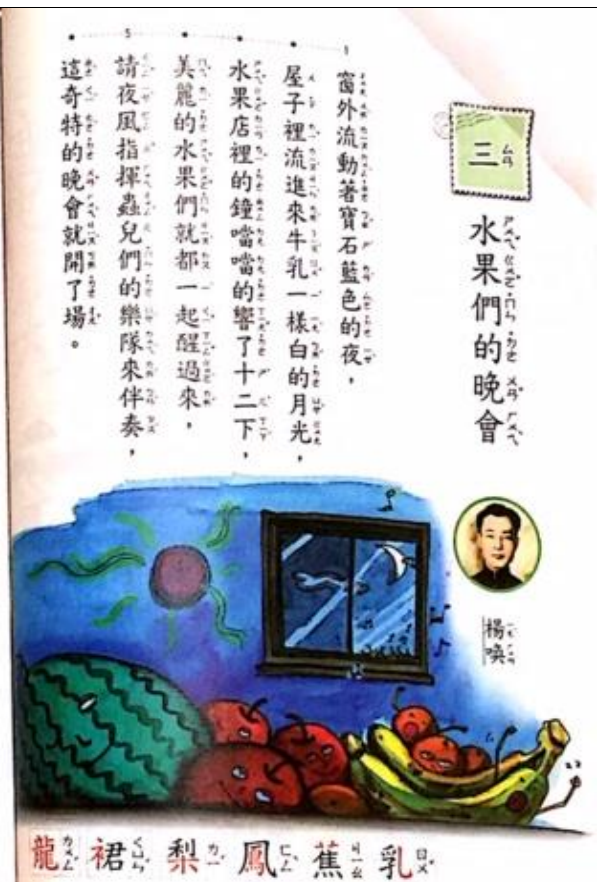 三
水果們的晚會
楊喚
窗外流動著寶石藍色的夜，
屋子裡流進來牛乳一樣白的月光，
水果店裡的鐘噹噹的響了十二下，
美麗的水果們就都一起醒過來，
請夜風指揮蟲兒們的樂隊來伴奏，
這奇特的晚會就開了場。
1
5
乳 蕉 鳳 梨 裙 龍